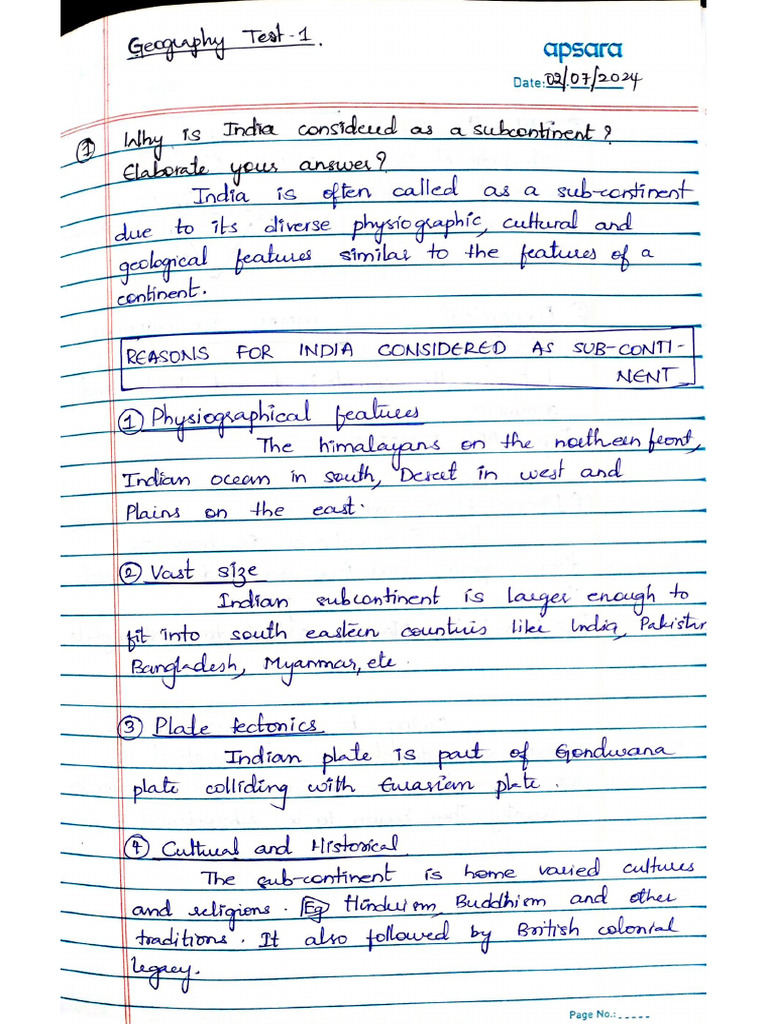 Geography Test-1.
apsara
Date: 02/07/2024
① Why is India considered as a subcontinent?
Elaborate your answer?
India is often called as a sub-continent
due to its diverse physiographic, cultural and
geological features similar to the features of a
continent.
REASONS FOR INDIA CONSIDERED AS SUB-CONTI-
NENT
① Physiographical features
The himalayans on the northern front,
Indian ocean in south, Desert in west and
Plains on the east.
② Vast size
Indian subcontinent is larger enough to
fit into south eastern countris like India, Pakistan
Bangladesh, Myanmar, etc.
③ Plate tectonics
Indian plate is part of Gondwana
plate colliding with Eurasian plate.
④ Cultural and Historical
The sub-continent is home varied cultures
and religions. Eg Hinduism, Buddhism and other
traditions. It also followed by British colonial
legacy.
Page No.: